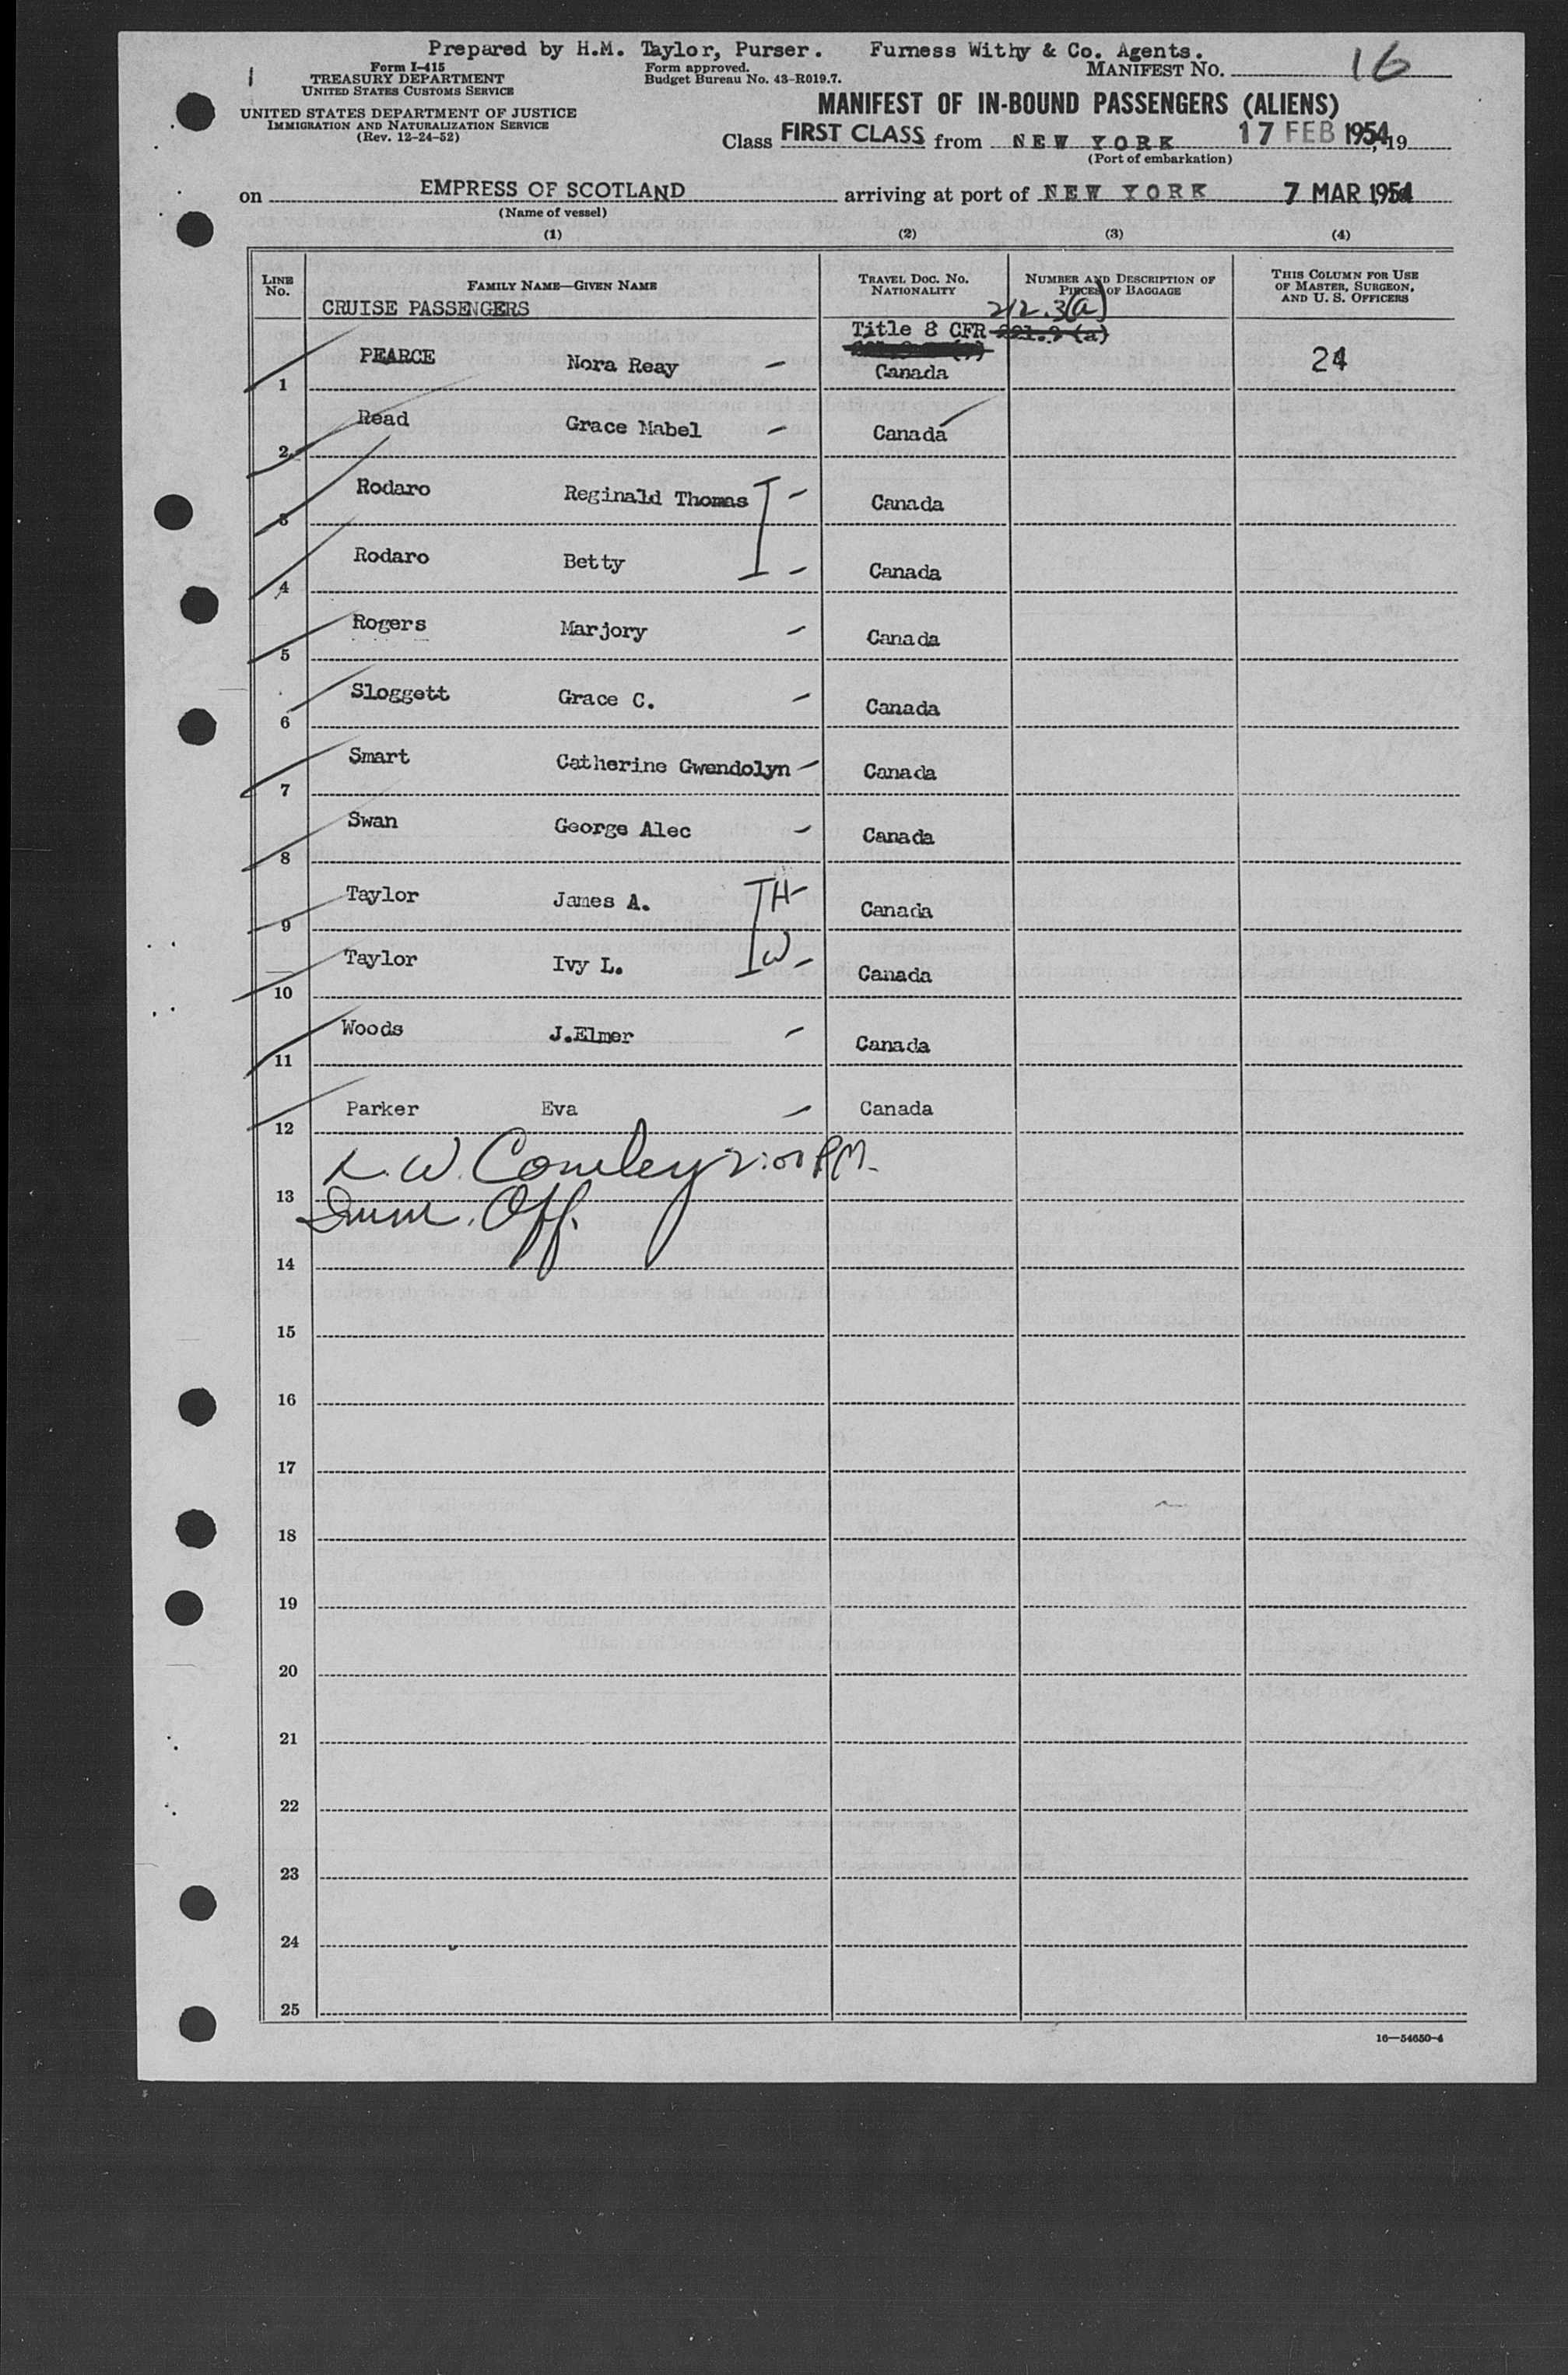 Prepared by H.M. Taylor, Purser. Furness Withy & Co. Agents.
1
Form I-415
TREASURY DEPARTMENT
UNITED STATES CUSTOMS SERVICE
UNITED STATES DEPARTMENT OF JUSTICE
IMMIGRATION AND NATURALIZATION SERVICE
(Rev. 12-24-52)
Form approved.
Budget Bureau No. 43-R019.7.
MANIFEST NO. 16
MANIFEST OF IN-BOUND PASSENGERS (ALIENS)
Class FIRST CLASS from NEW YORK 17 FEB 1954, 19
(Port of embarkation)
on EMPRESS OF SCOTLAND arriving at port of NEW YORK 7 MAR 1954
(Name of vessel)
(1) (2) (3) (4)
LINE NO.
FAMILY NAME—GIVEN NAME
TRAVEL DOC. NO. NATIONALITY
NUMBER AND DESCRIPTION OF PIECES OF BAGGAGE
THIS COLUMN FOR USE OF MASTER, SURGEON, AND U. S. OFFICERS
CRUISE PASSENGERS
212.3(a)
Title 8 CFR
1 PEARCE Nora Reay – Canada 24
2 Read Grace Mabel – Canada
3 Rodaro Reginald Thomas – Canada
4 Rodaro Betty – Canada
5 Rogers Marjory – Canada
6 Sloggett Grace C. – Canada
7 Smart Catherine Gwendolyn – Canada
8 Swan George Alec – Canada
9 Taylor James A. H– Canada
10 Taylor Ivy L. W– Canada
11 Woods J.Elmer – Canada
12 Parker Eva – Canada
2:00 P.M.
13 Imm. Off.
14
15
16
17
18
19
20
21
22
23
24
25
16—54650-4